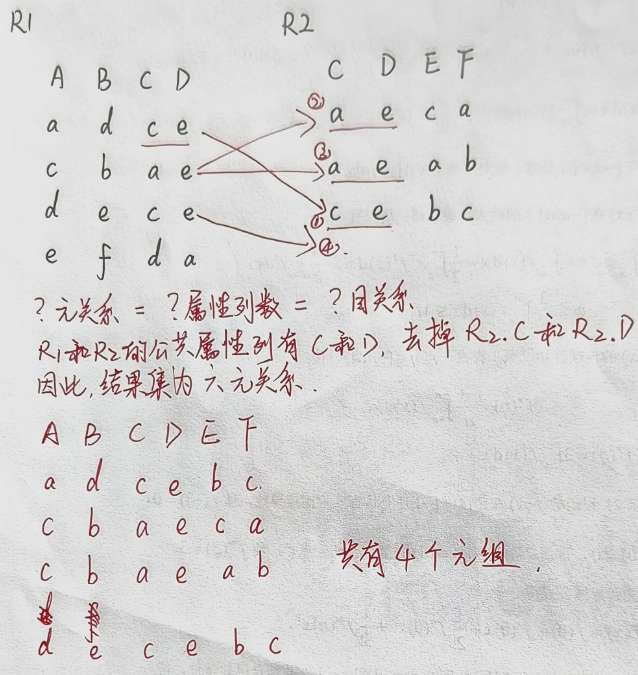 R1 R2
A B C D C D E F
a d c e ② a e c a
c b a e ③ a e a b
d e c e ① c e b c
e f d a ④
?元关系 = ?属性列数 = ?目关系.
R1和R2的公共属性列有C和D, 去掉R2.C和R2.D
因此,结果集为六元关系.
A B C D E F
a d c e b c.
c b a e c a
c b a e a b 共有4个元组.
d e c e b c